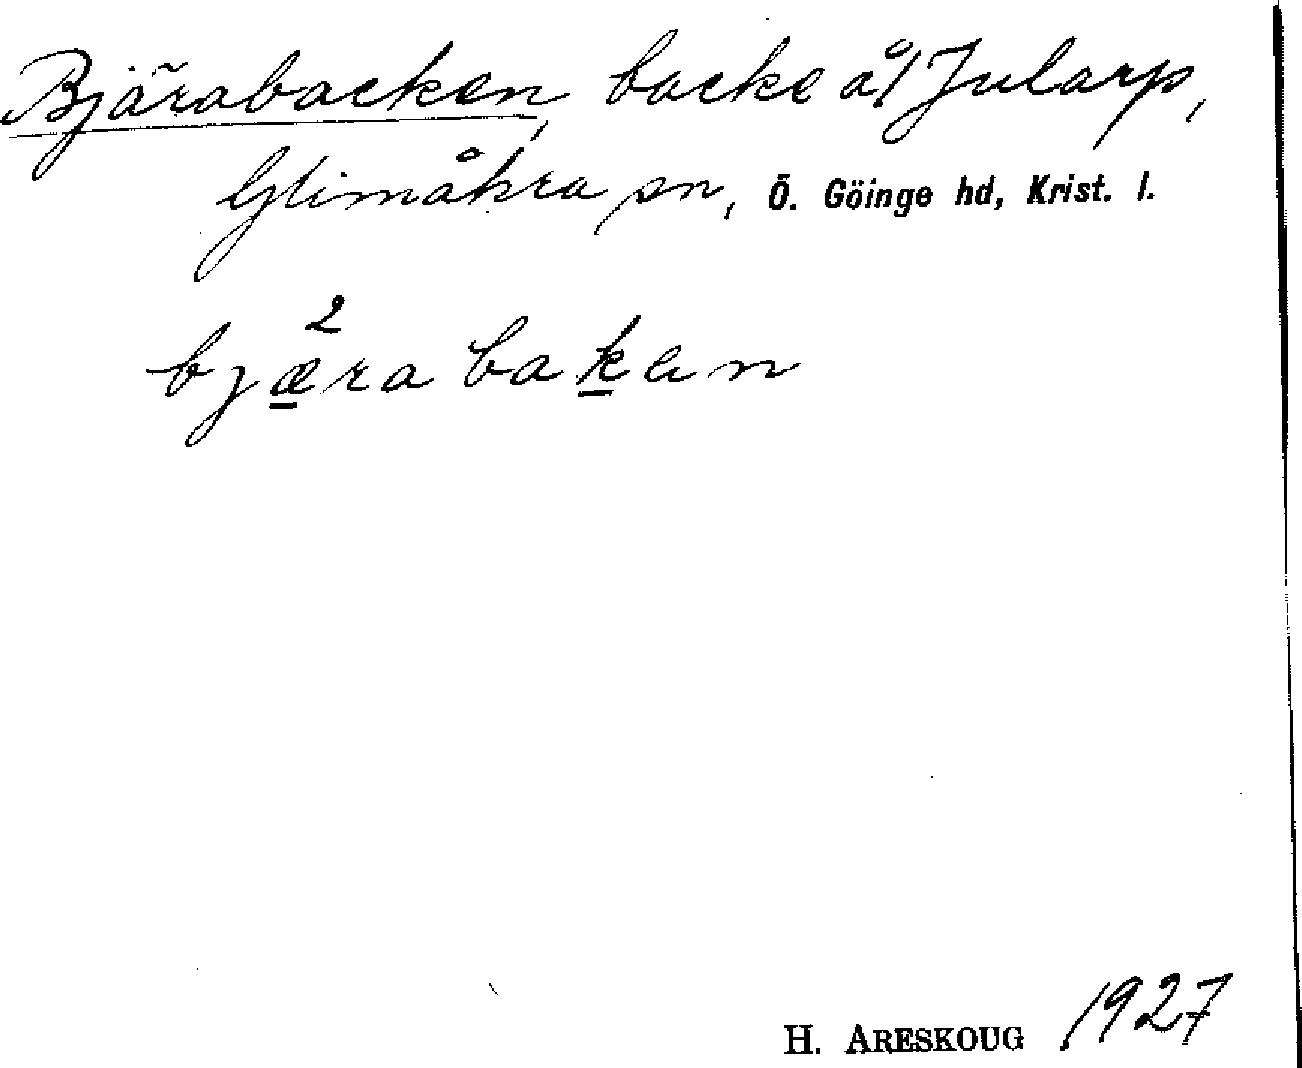 Bjärabacken, backe å Jularp,
Glimåkra sn, Ö. Göinge hd, Krist. l.
2
bjæra baken
H. ARESKOUG 1927